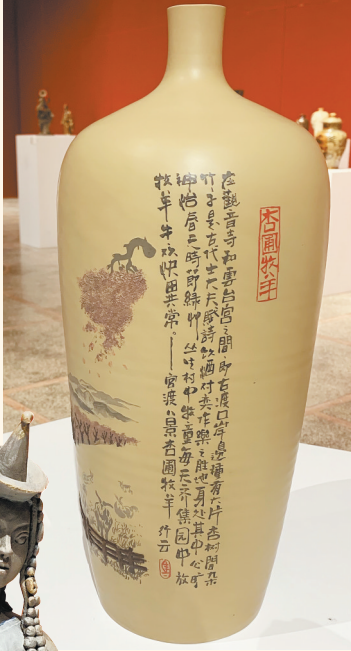 杏圃牧羊
在觀音寺和雲台宮之間即古渡口岸邊種有大片杏树間杂
竹子是古代士大夫賦詩饮酒对奕作樂之胜地身处其中心旷
神怡春天時節綠艸丛生村中牧童每天齐集园中放
牧羊牛欢快異常
官渡八景杏圃牧羊
行云